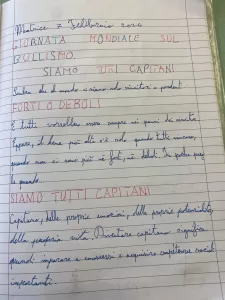 Matrice 7 Febbraio 2020
GIORNATA MONDIALE SUL
BULLISMO.
SIAMO TUTTI CAPITANI
che il mondo siamo solo vincitori o perdenti
FORTI O DEBOLI
E tutti vorrebbero essere sempre nei panni dei
Eppure, di bene più alti c'è solo quando tutti
quando non ci sono più né forti, né deboli. In
SIAMO TUTTI CAPITANI
Capitano, delle proprie emozioni, delle proprie potenzialità,
della propria vita. Diventare capitano significa
quindi imparare a conoscersi e acquisire competenze sociali
importanti.